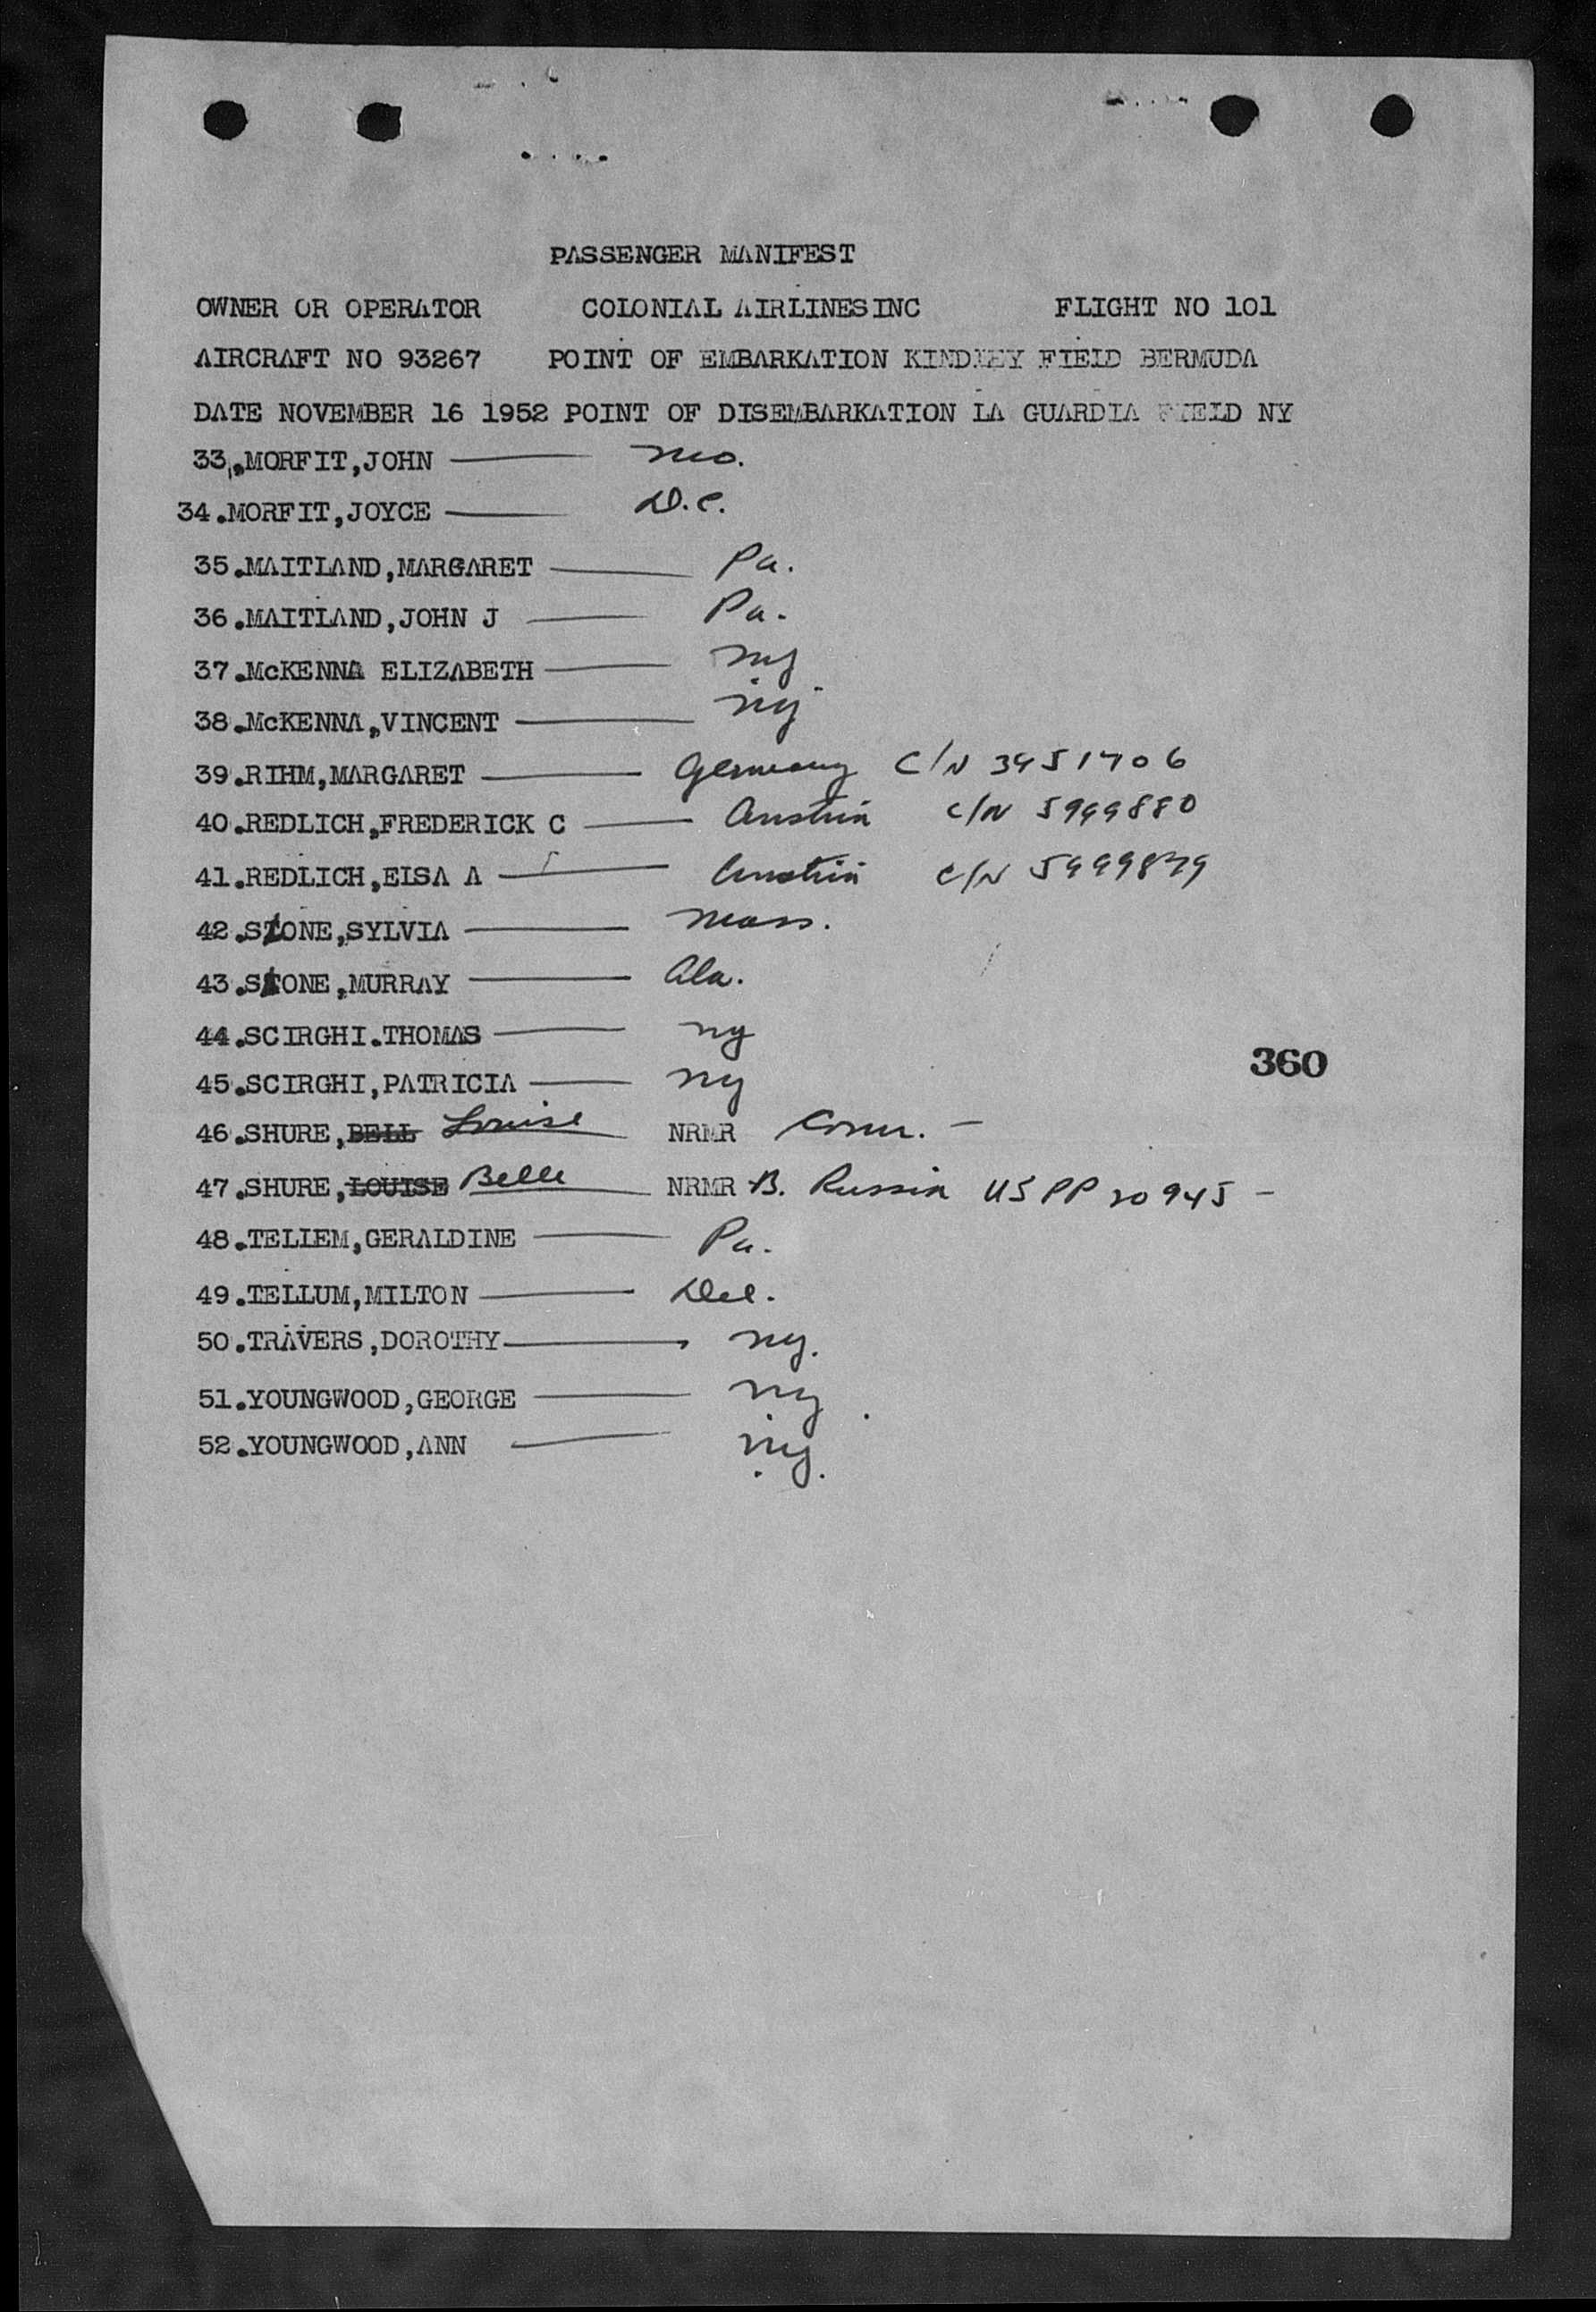 PASSENGER MANIFEST
OWNER OR OPERATOR COLONIAL AIRLINES INC FLIGHT NO 101
AIRCRAFT NO 93267 POINT OF EMBARKATION KINDLEY FIELD BERMUDA
DATE NOVEMBER 16 1952 POINT OF DISEMBARKATION LA GUARDIA FIELD NY
33.MORFIT,JOHN Mo.
34.MORFIT,JOYCE D.C.
35.MAITLAND,MARGARET Pa.
36.MAITLAND,JOHN J Pa.
37.McKENNA ELIZABETH NY
38.McKENNA,VINCENT NY
39.RIHM,MARGARET Germany C/N 3951706
40.REDLICH,FREDERICK C Austria C/N 5999880
41.REDLICH,EISA A Austria C/N 5999879
42.STONE,SYLVIA Mass.
43.STONE,MURRAY Ala.
44.SCIRGHI.THOMAS NY
45.SCIRGHI,PATRICIA NY
360
46.SHURE,BELL Louise NRMR Conn. -
47.SHURE,LOUISE Belle NRMR B. Russia US PP 20945 -
48.TELLEM,GERALDINE Pa.
49.TELLUM,MILTON Del.
50.TRAVERS,DOROTHY NY.
51.YOUNGWOOD,GEORGE NY
52.YOUNGWOOD,ANN NY.